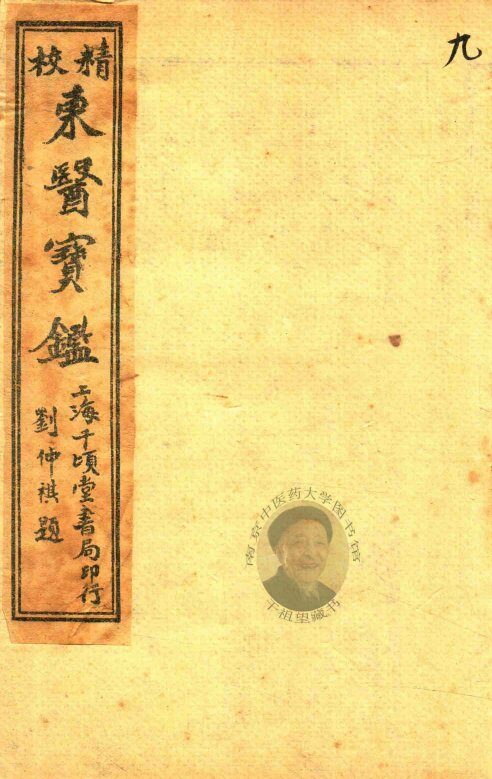 九
精校
東醫寶鑑
上海千頃堂書局印行
劉仲祺題
南京中医药大学图书馆
干祖望藏书